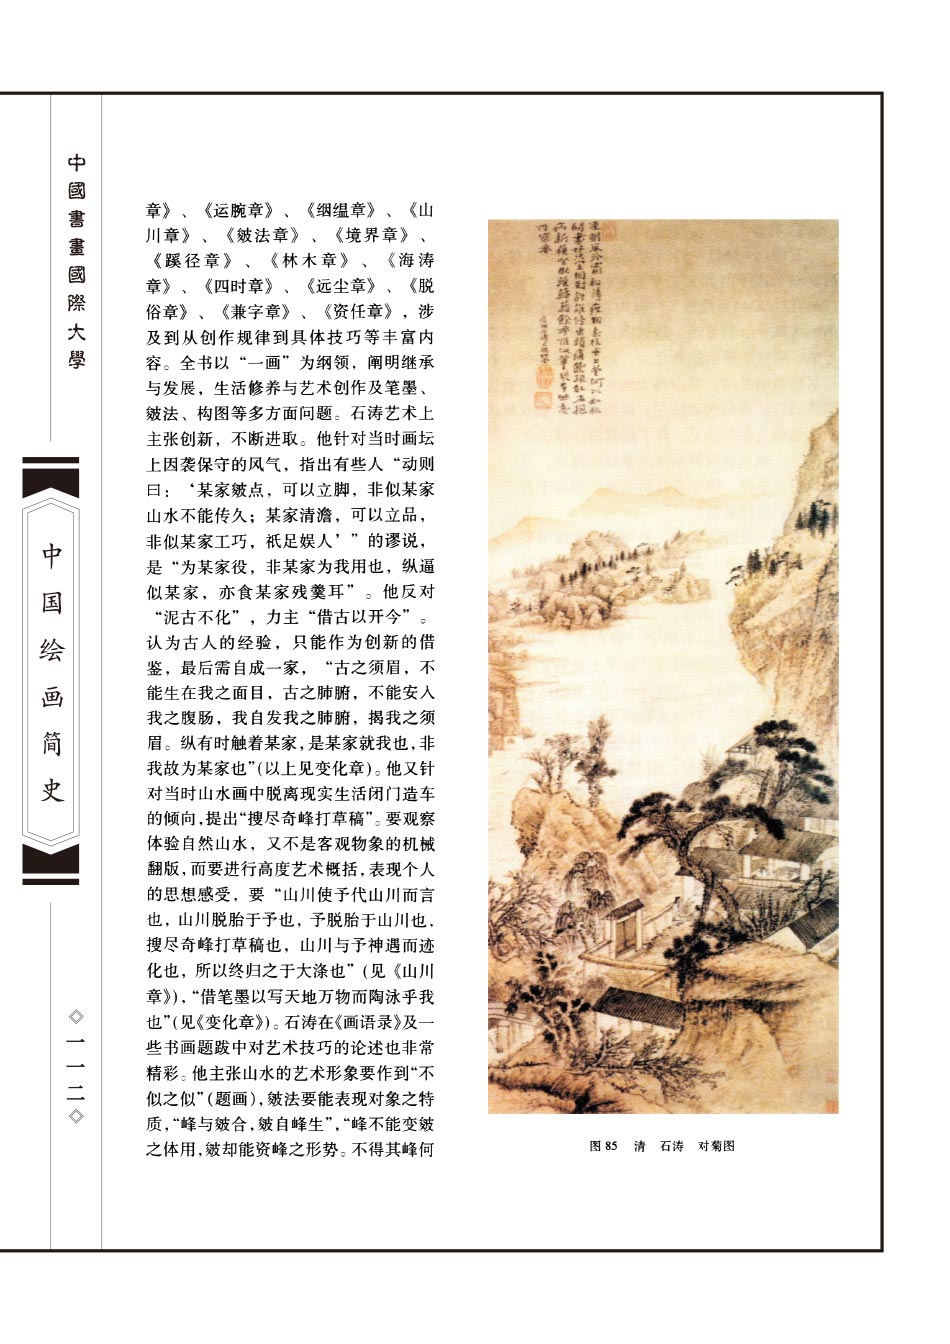 中國書畫國際大學
中国绘画简史
一一二
章》、《运腕章》、《绷缊章》、《山
川章》、《皴法章》、《境界章》、
《蹊径章》、《林木章》、《海涛
章》、《四时章》、《远尘章》、《脱
俗章》、《兼字章》、《资任章》，涉
及到从创作规律到具体技巧等丰富内
容。全书以“一画”为纲领，阐明继承
与发展，生活修养与艺术创作及笔墨、
皴法、构图等多方面问题。石涛艺术上
主张创新，不断进取。他针对当时画坛
上因袭保守的风气，指出有些人“动则
曰：‘某家皴点，可以立脚，非似某家
山水不能传久；某家清澹，可以立品，
非似某家工巧，祇足娱人’”的谬说，
是“为某家役，非某家为我用也，纵逼
似某家，亦食某家残羹耳”。他反对
“泥古不化”，力主“借古以开今”。
认为古人的经验，只能作为创新的借
鉴，最后需自成一家，“古之须眉，不
能生在我之面目，古之肺腑，不能安入
我之腹肠，我自发我之肺腑，揭我之须
眉。纵有时触着某家，是某家就我也，非
我故为某家也”(以上见变化章)。他又针
对当时山水画中脱离现实生活闭门造车
的倾向，提出“搜尽奇峰打草稿”。要观察
体验自然山水，又不是客观物象的机械
翻版，而要进行高度艺术概括，表现个人
的思想感受，要“山川使予代山川而言
也，山川脱胎于予也，予脱胎于山川也，
搜尽奇峰打草稿也，山川与予神遇而迹
化也，所以终归之于大涤也”(见《山川
章》)，“借笔墨以写天地万物而陶泳乎我
也”(见《变化章》)。石涛在《画语录》及一
些书画题跋中对艺术技巧的论述也非常
精彩。他主张山水的艺术形象要作到“不
似之似”(题画)，皴法要能表现对象之特
质，“峰与皴合，皴自峰生”，“峰不能变皴
之体用，皴却能资峰之形势。不得其峰何
图85 清 石涛 对菊图